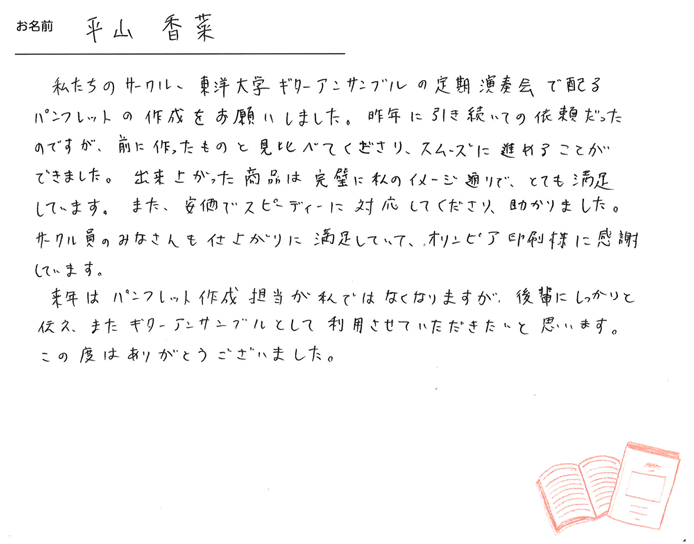 お名前 平山 香菜
私たちのサークル、東洋大学ギターアンサンブルの定期演奏会で配る
パンフレットの作成をお願いしました。昨年に引き続いての依頼だった
のですが、前に作ったものと見比べてくださり、スムーズに進めることが
できました。出来上がった商品は完璧に私のイメージ通りで、とても満足
しています。また、安価でスピーディーに対応してくださり、助かりました。
サークル員のみなさんも仕上がりに満足していて、オリンピア印刷様に感謝
しています。
来年はパンフレット作成担当が私ではなくなりますが、後輩にしっかりと
伝え、またギターアンサンブルとして利用させていただきたいと思います。
この度はありがとうございました。